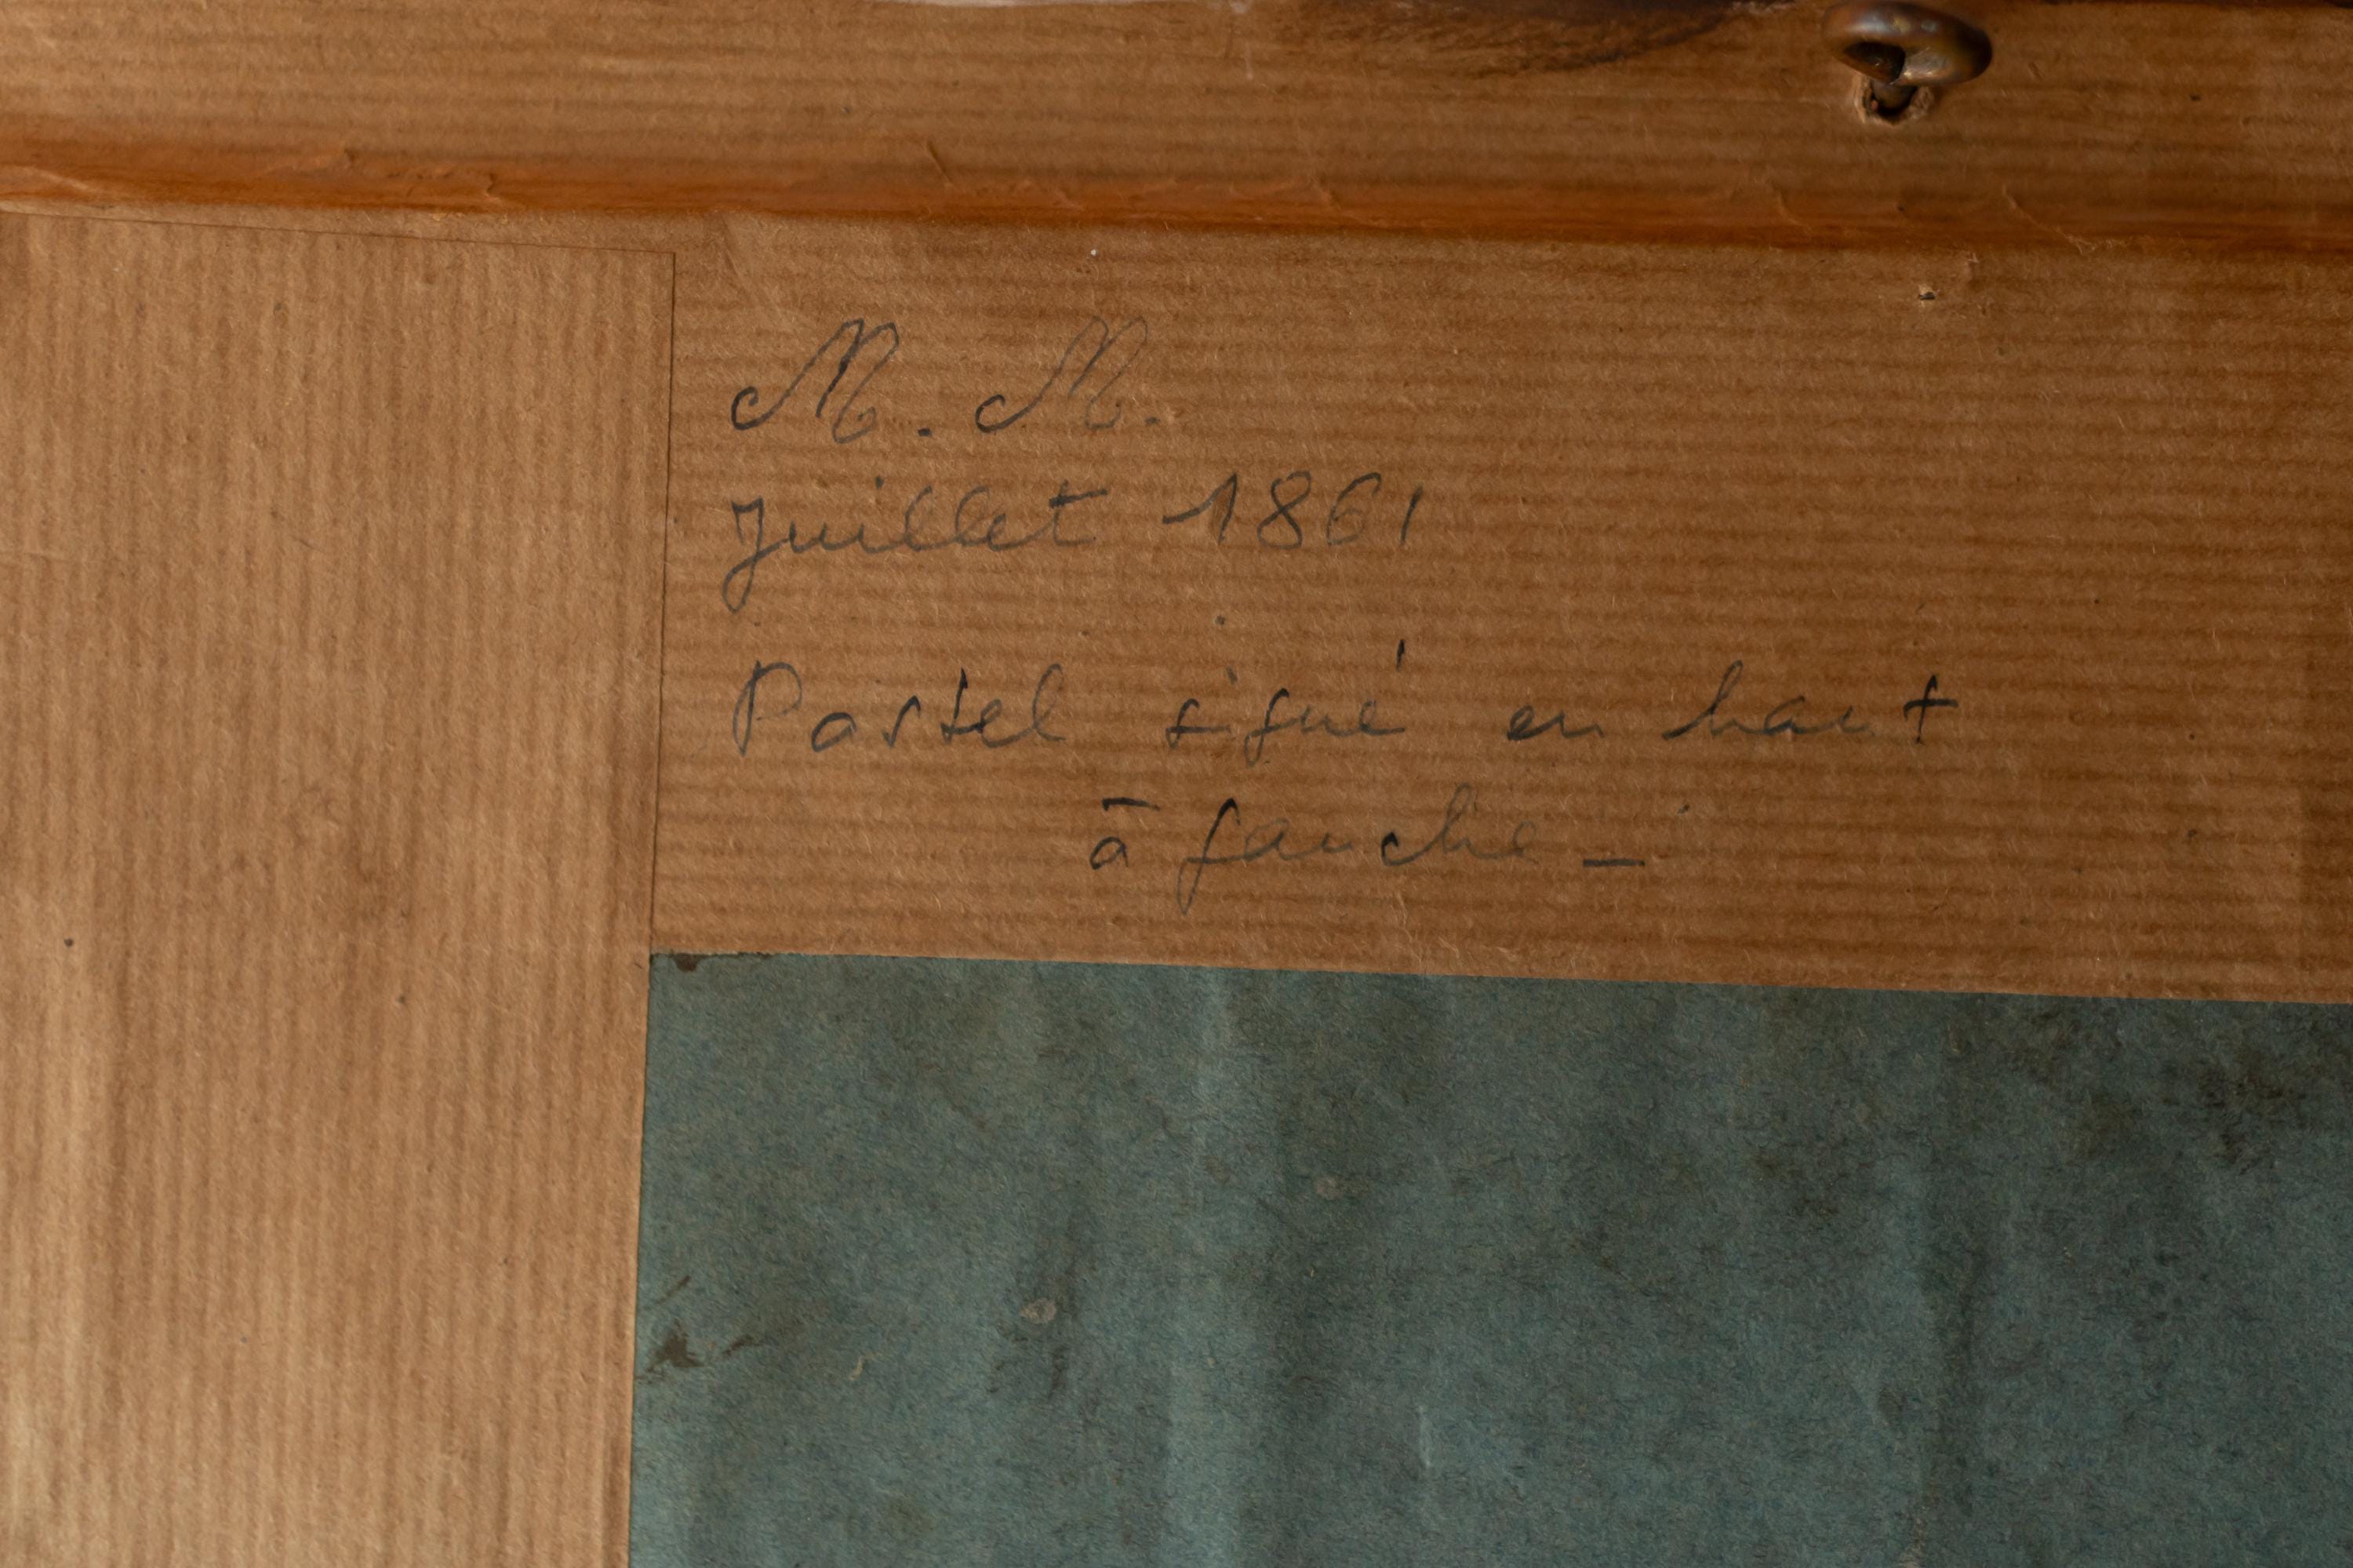 M. M.
Juillet 1861
Pastel signé en haut
à gauche _